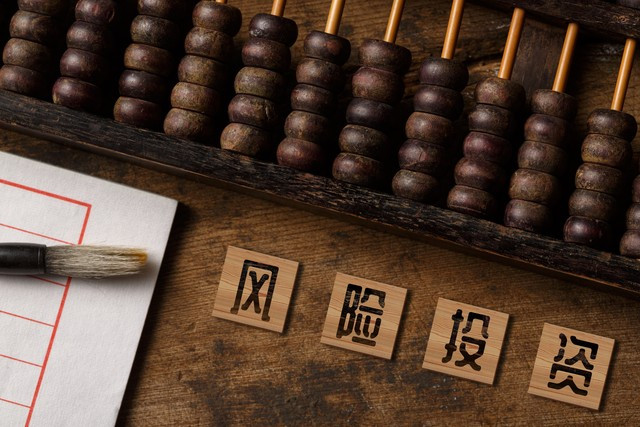 风险投资